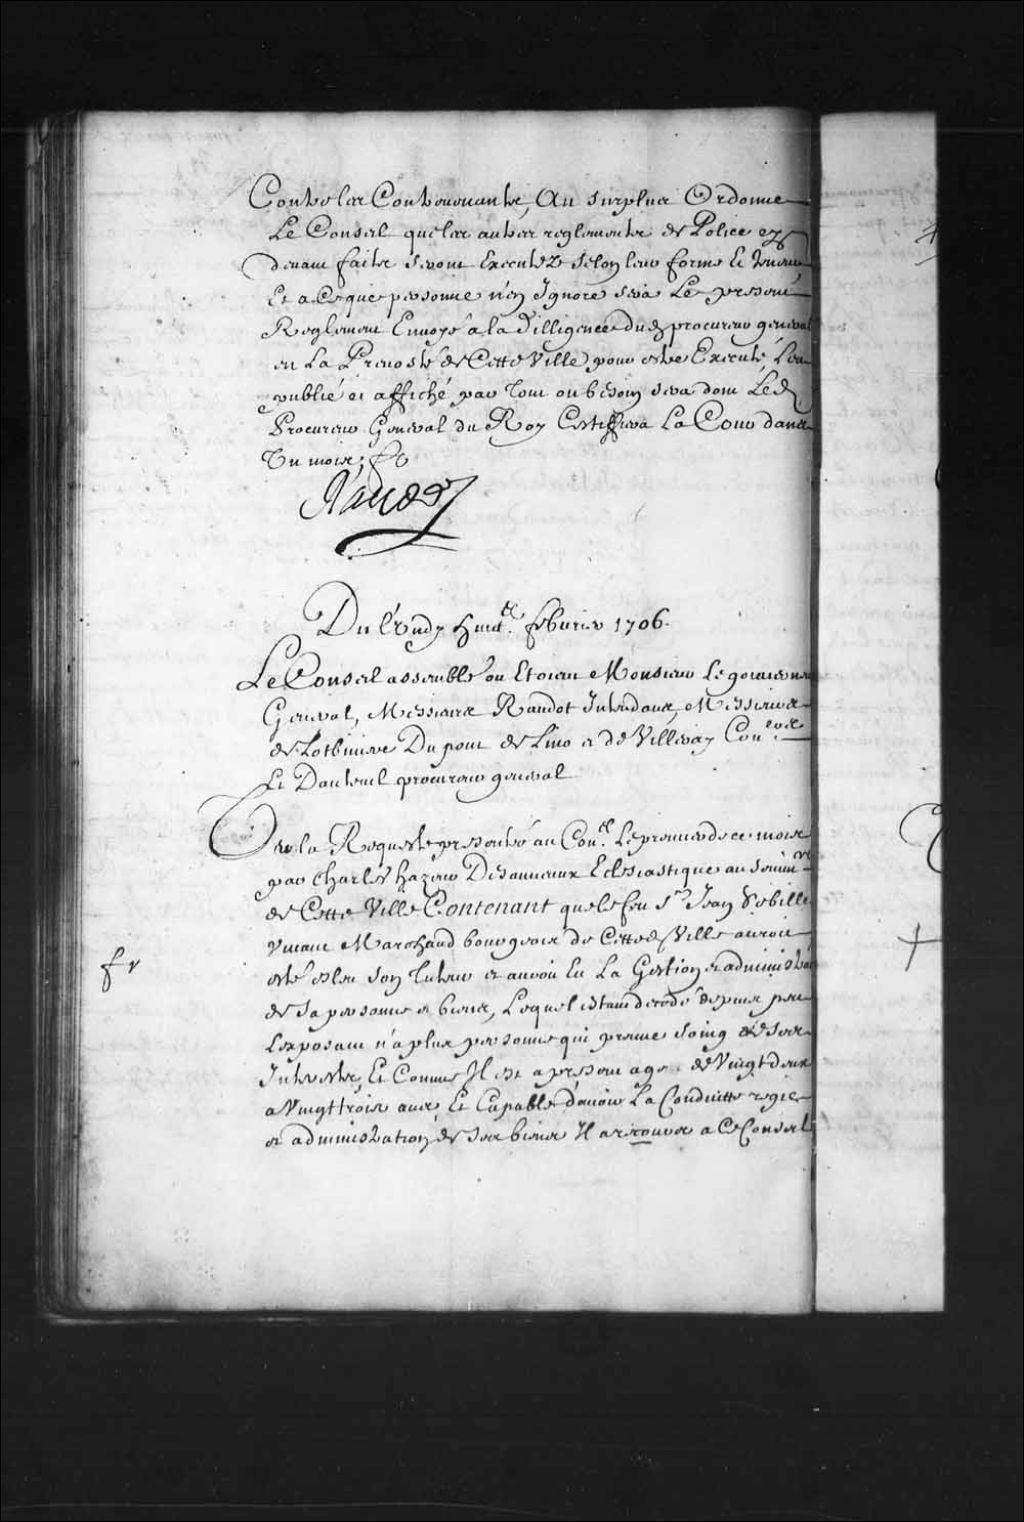 Contre les Contrevenants, Au surplus Ordonne
Le Conseil que les autres reglements de Police cy
devant faits seront Executez selon leur forme Et teneur
Et a Ce que personne n'en Ignore sera Le present
Reglement Envoyé a la dilligence dud procureur general
en La Prevosté de Cette Ville pour estre Executé, Leu
publié et affiché par Tout ou besoin sera dont Led.
Procureur General du Roy Certiffira La Cour dans
Un mois
Raudot
Du Lundy huit.e febvrier 1706.
Le Conseil assemblé ou Etoient Monsieur Le gouverneur
General, Messieurs Raudot Intendans, Messieurs
de Lotbiniere Dupont de Lino et de Villeray Con.ers
Et Dauteuil procureur general
Veu la Requeste presentée au Con.el Le premier de ce mois
par Charles hazeur Desauneaux Eclesiastique au Semin.re
de Cette Ville Contenant que le feu S.r Jean Sebille
vivant Marchand bourgeois de Cetted Ville auroit
esté esleu son Tuteur et auroit Eu La Gestion et administraon
de sa personne et biens, Lequel estant decedé depuis peu
Lexposant n'a plus personne qui prenne soing de ses
Interests, Et Comme Il est apresent agé de Vingt deux
a Vingt trois ans, Et Capable d'avoir La Conduitte regie
et administration de ses biens Il a recours a Ce Conseil